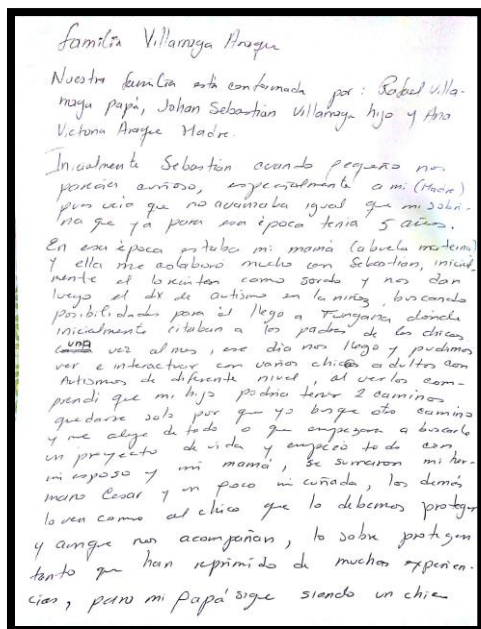 Familia Villarraga Araque
Nuestra familia está conformada por: Rafael Villa-
rraga papá, Johan Sebastián Villarraga hijo y Ana
Victoria Araque Madre.
Inicialmente Sebastián cuando pequeño nos
parecía, especialmente a mi (Madre)
pues veia que no avanzaba igual que mi sobri-
na que ya para esa época tenia 5 años.
En esa época estaba mi mamá (abuela materna)
y ella me colaboro mucho con Sebastian, inicial-
mente el como sordo y nos dan
luego el dx de autismo en la niñez, buscando
posibilidades para él llego a Tungarra donde
inicialmente citaban a los padres de los chicos
una vez al mes, ese dia nos llego y pudimos
ver e interactuar con varios chicos adultos con
Autismos de diferente nivel, al verlos com-
prendi que mi hijo podria tener 2 caminos
quedarse solo por que yo busque otro camino
y me aleje de todo o que empezara a buscarle
un proyecto de vida y empezó todo con
mi esposo y mi mamá, se sumaron mi her-
mano Cesar y un poco mi cuñada, los demás
lo ven como al chico que lo debemos proteger
y aunque nos acompañan, lo sobre protegen
tanto que han reprimido de muchas experien-
cias, para mi Papá sigue siendo un chico